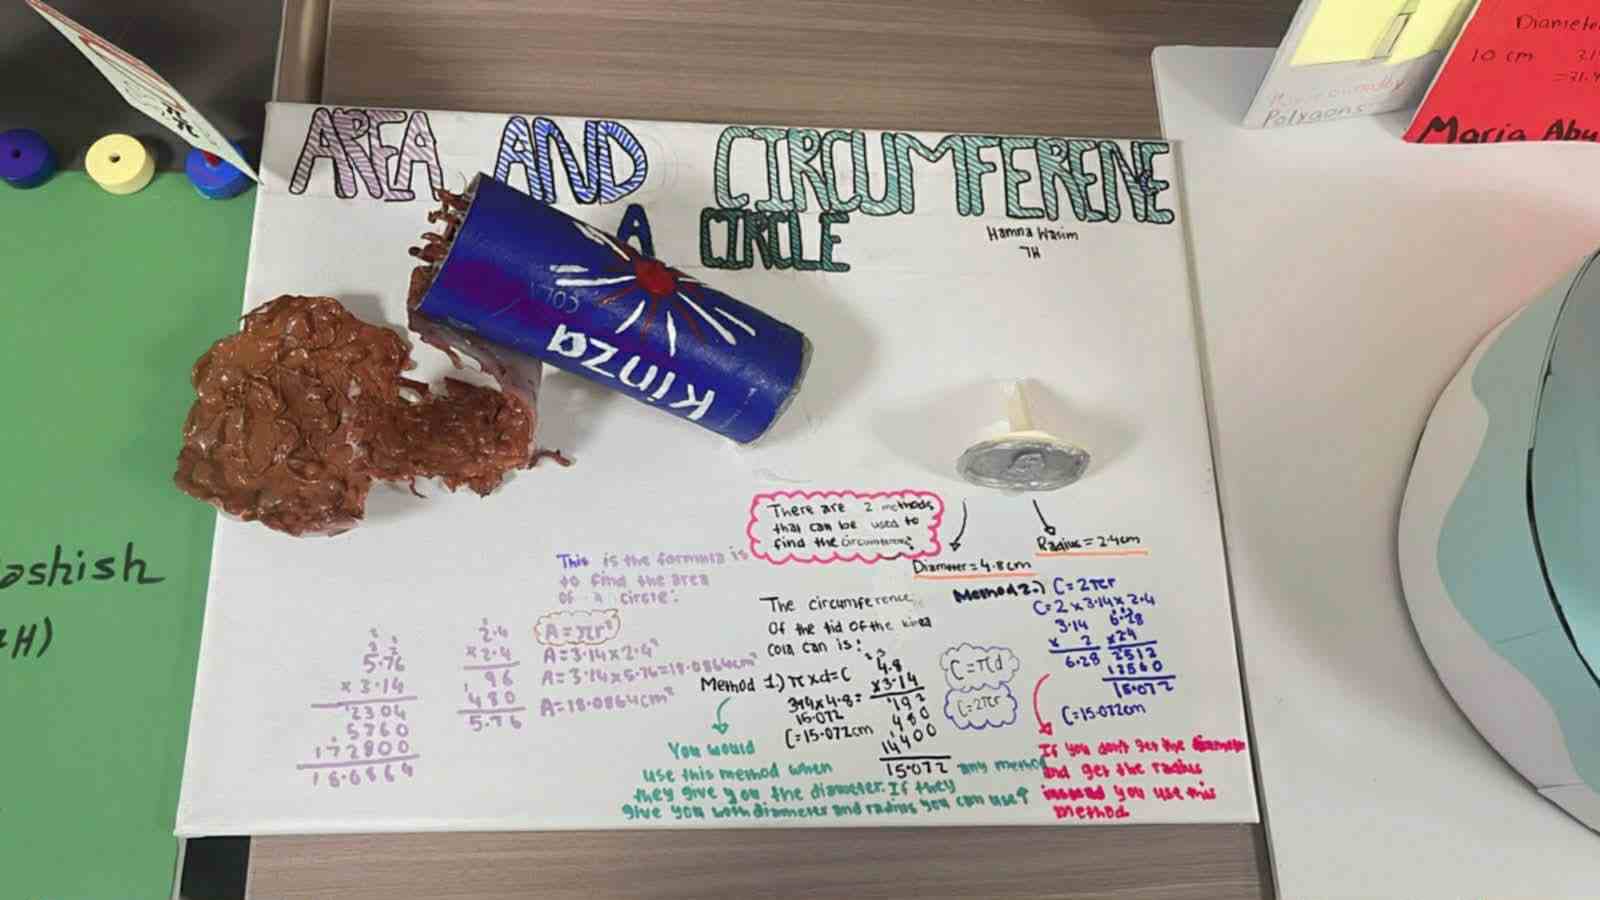 AREA AND CIRCUMFERENE
A CIRCLE
Hamna Wasim
7H
COLA
Kinza
There are 2 methods
that can be used to
find the circumference.
Diameter = 4.8cm
Radius = 2.4cm
This is the formula is
to find the area
of a circle:
A = πr²
A = 3.14 x 2.4²
A = 3.14 x 5.76 = 18.0864cm²
A = 18.0864cm²
5.76
x 3.14
2304
5760
172800
18.0864
2.4
x 2.4
96
480
5.76
The circumference
Of the lid of the kinza
cola can is:
Method 1.) π x d = C
3.14 x 4.8 =
15.072
C = 15.072cm
4.8
x 3.14
192
480
14400
15.072
C = πd
C = 2πr
Method 2.) C = 2πr
C = 2 x 3.14 x 2.4
3.14
x 2
6.28
6.28
x 2.4
2512
12560
15.072
C = 15.072cm
You would
use this method when
they give you the diameter. If they
give you both diameter and radius you can use
any method
If you don't get the diameter
and get the radius
instead you use this
method.
ashish
H)
Polygons
Diameter
10 cm
Maria Abu